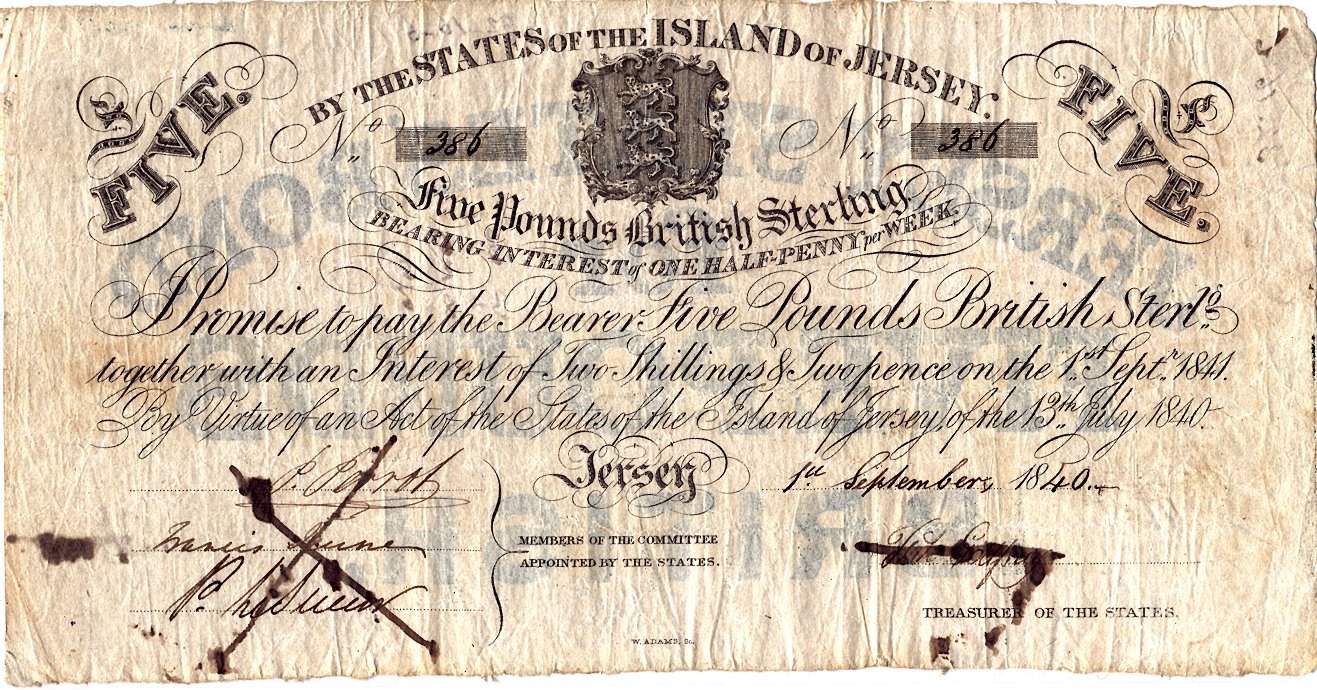 BY THE STATES OF THE ISLAND OF JERSEY.
£ FIVE.
£ FIVE.
No 386
No 386
Five Pounds British Sterling
BEARING INTEREST of ONE HALF-PENNY per WEEK.
I Promise to pay the Bearer Five Pounds British Sterlg.
together with an Interest of Two Shillings & Two pence on the 1st. Septr. 1841.
By Virtue of an Act of the States of the Island of Jersey, of the 13th. July 1840.
Jersey 1st September 1840.
Francis
MEMBERS OF THE COMMITTEE
APPOINTED BY THE STATES.
P.
TREASURER OF THE STATES.
W. ADAMS. Sc.